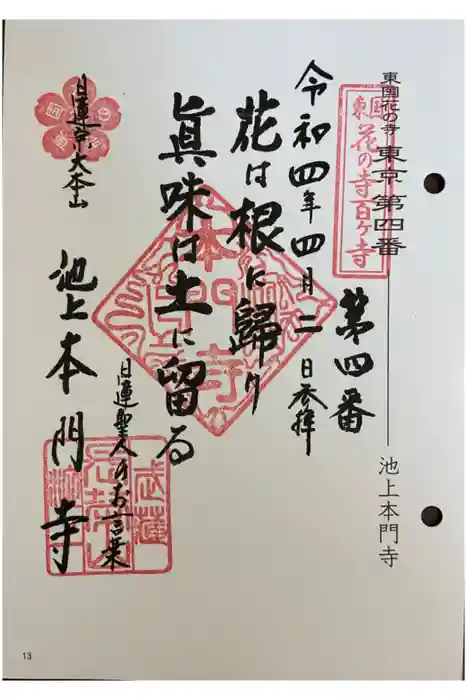 東国花の寺 東京 第四番
池上本門寺
東国
花の寺百ヶ寺
第四番
令和四年四月二日参拝
花は根に歸り
眞味は土に留る
日蓮聖人のお言葉
日蓮宗大本山
池上本門寺
13